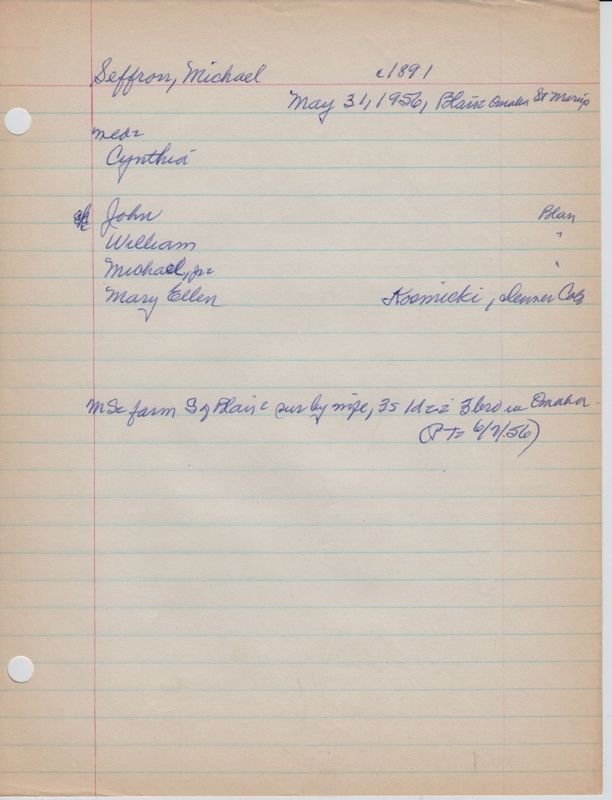 Seffron, Michael c1891
May 31, 1956, Blair Omaha St Marys
med:
Cynthia
ch John Blair
William "
Michael, jr. "
Mary Ellen Kosmicki, Denver Colo
farm S of Blair sur by wife, 3s 1d 3 bro in Omaha
(PT= 6/7/56)